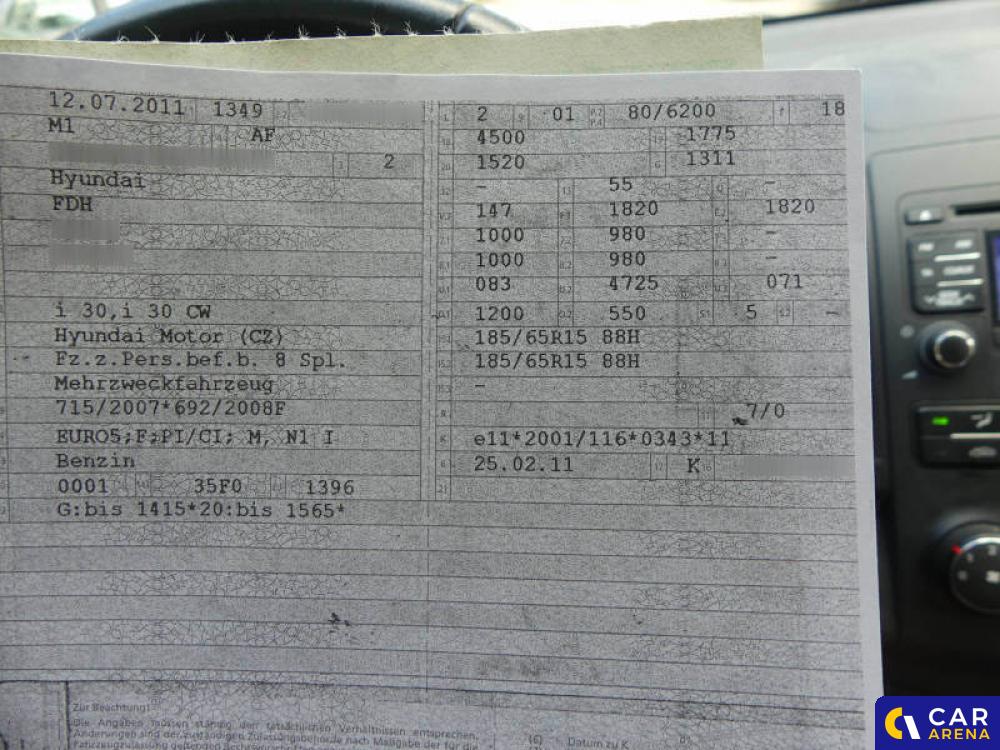 12.07.2011 1349
M1 AF
2
Hyundai
FDH
i 30,i 30 CW
Hyundai Motor (CZ)
Fz.z.Pers.bef.b. 8 Spl.
Mehrzweckfahrzeug
715/2007*692/2008F
EURO5;F;PI/CI; M, N1 I
Benzin
0001 35F0 1396
G:bis 1415*20:bis 1565*
2 01 80/6200 18
4500 1775
1520 1311
- 55 -
147 1820 1820
1000 980 -
1000 980 -
083 4725 071
1200 550 5 -
185/65R15 88H
185/65R15 88H
-
7/0
e11*2001/116*0343*11
25.02.11 K
Zur Beachtung!
Die Angaben müssen ständig den tatsächlichen Verhältnissen entsprechen.
Datum zu K
CAR
ARENA